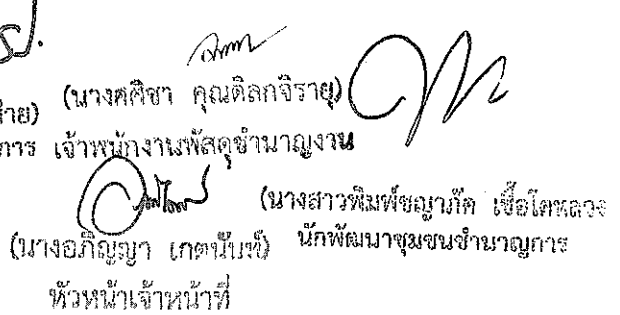 (นางศศิชา คุณดิลกจิรายุ)
เจ้าพนักงานพัสดุชำนาญงาน
(นางสาวพิมพ์ชญาภัค
(นางอภิญญา นักพัฒนาชุมชนชำนาญการ
หัวหน้าเจ้าหน้าที่